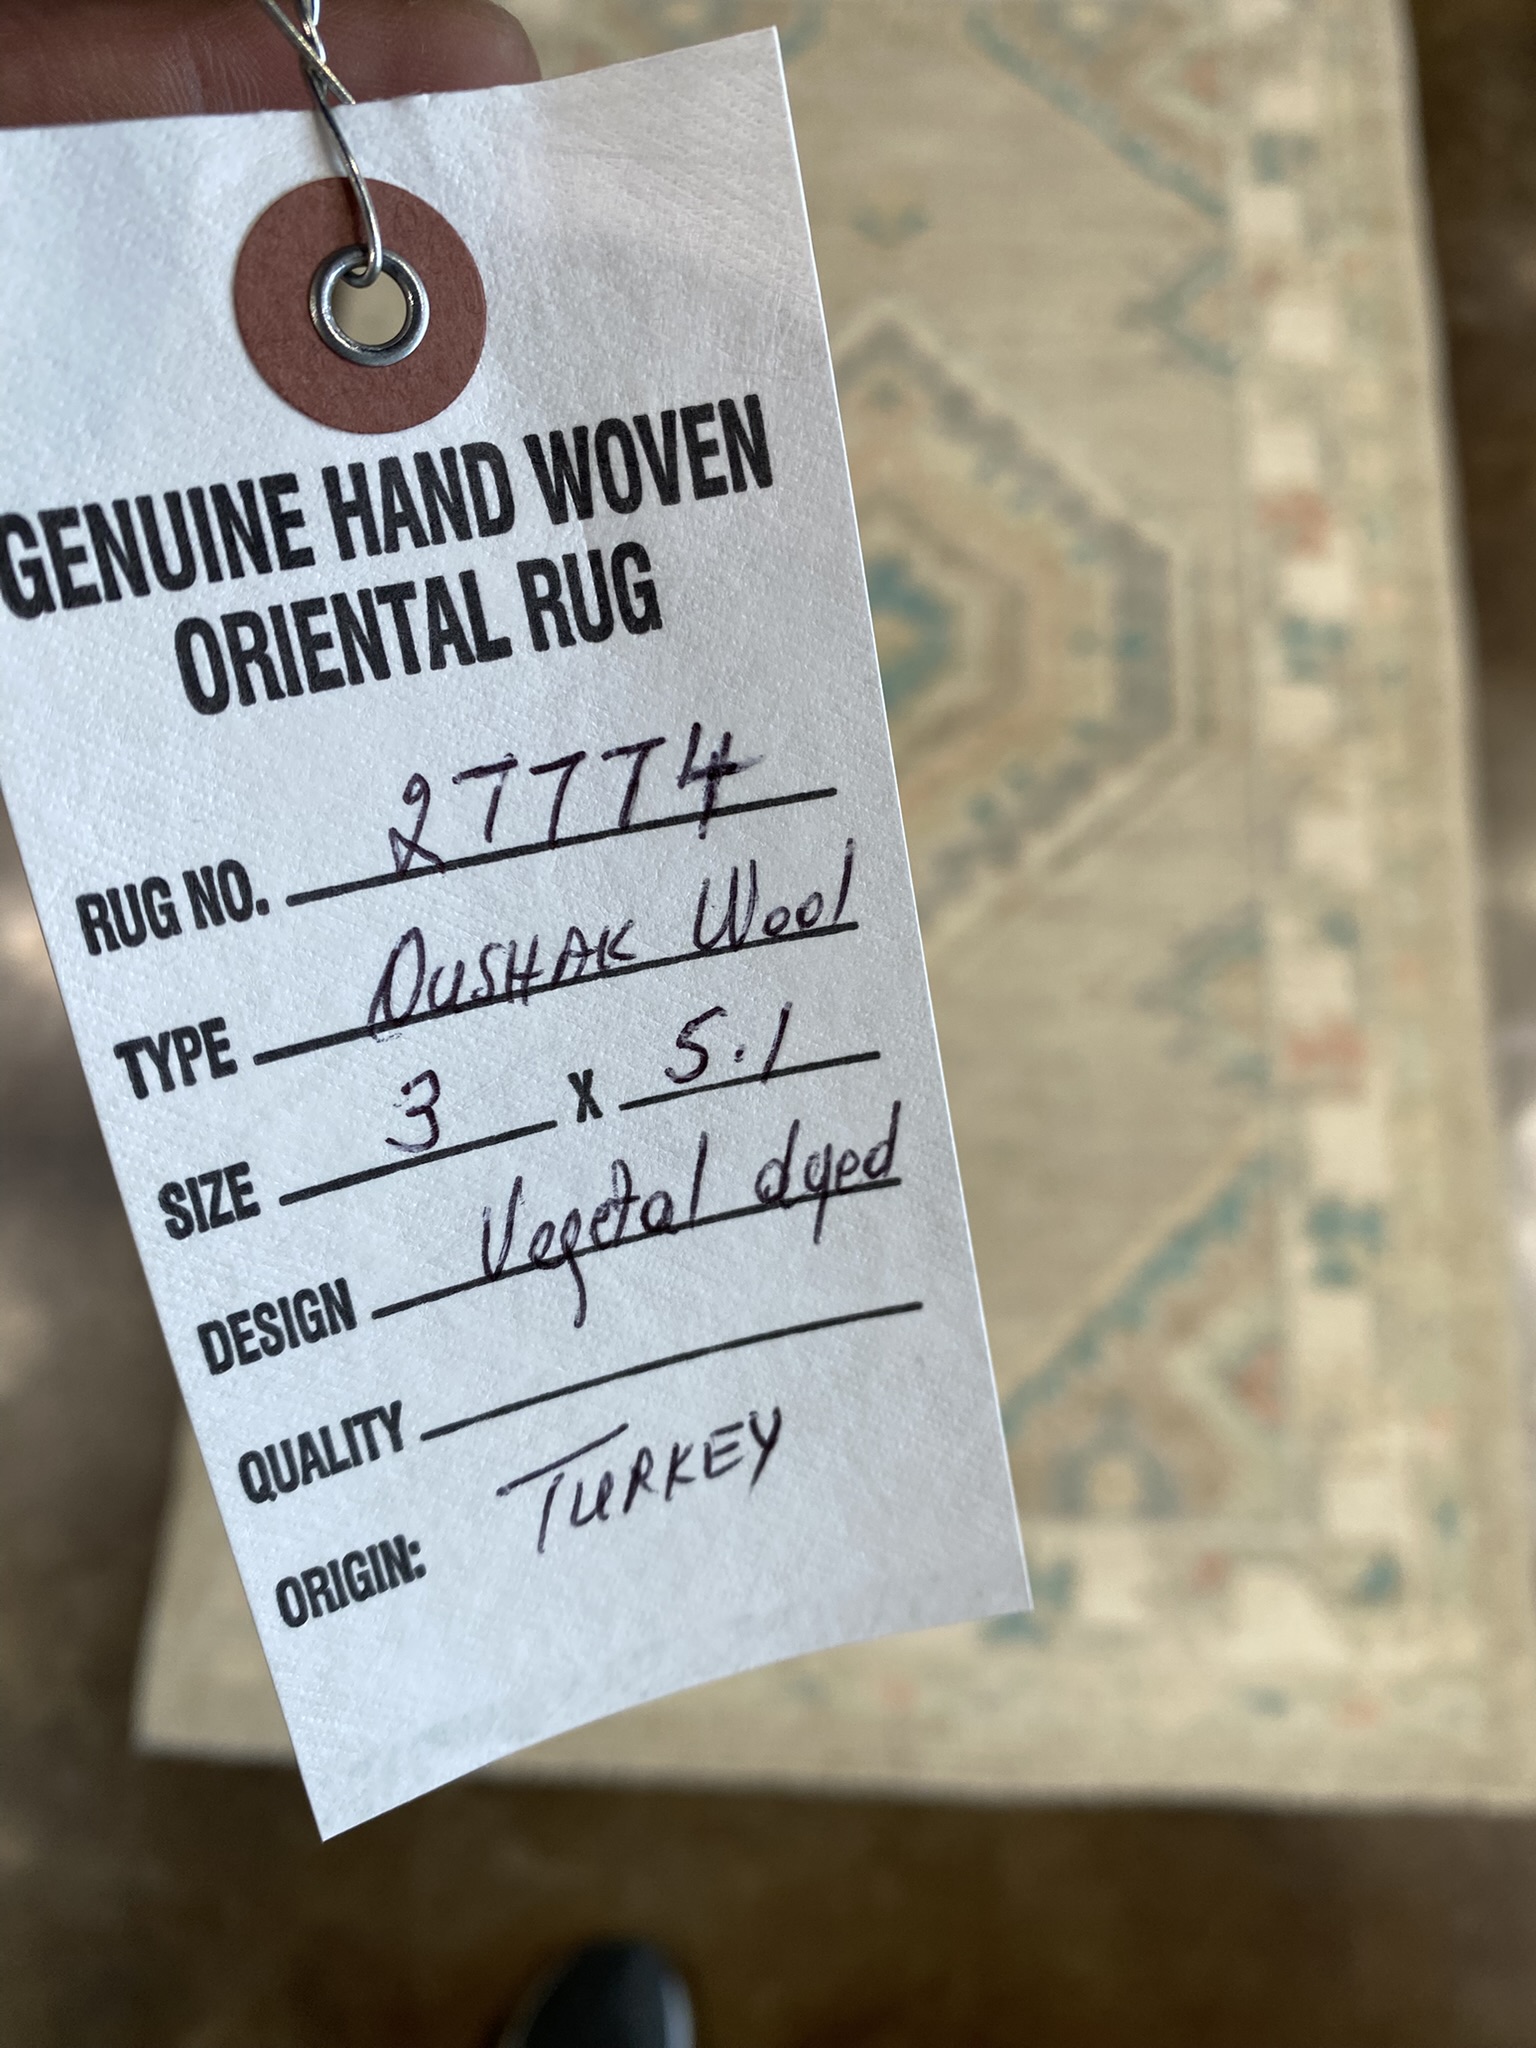 GENUINE HAND WOVEN
ORIENTAL RUG
RUG NO. 27774
TYPE OUSHAK Wool
SIZE 3 X 5.1
DESIGN Vegetal dyed
QUALITY
ORIGIN: TURKEY